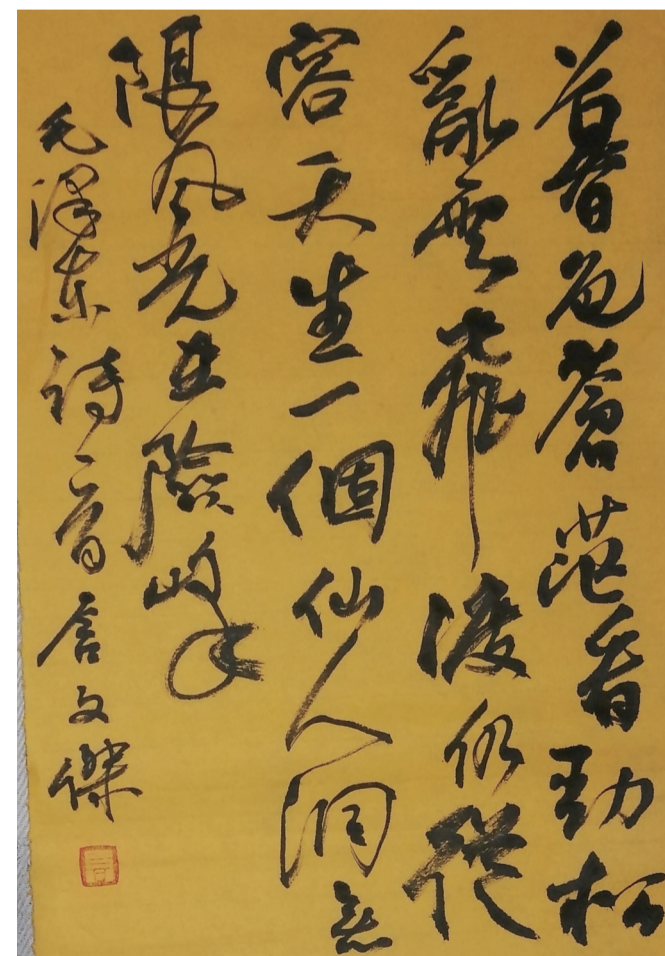 暮色蒼茫看勁松
亂雲飛渡仍從
容天生一個仙人洞無
限風光在險峰
毛澤東詩一首 文傑